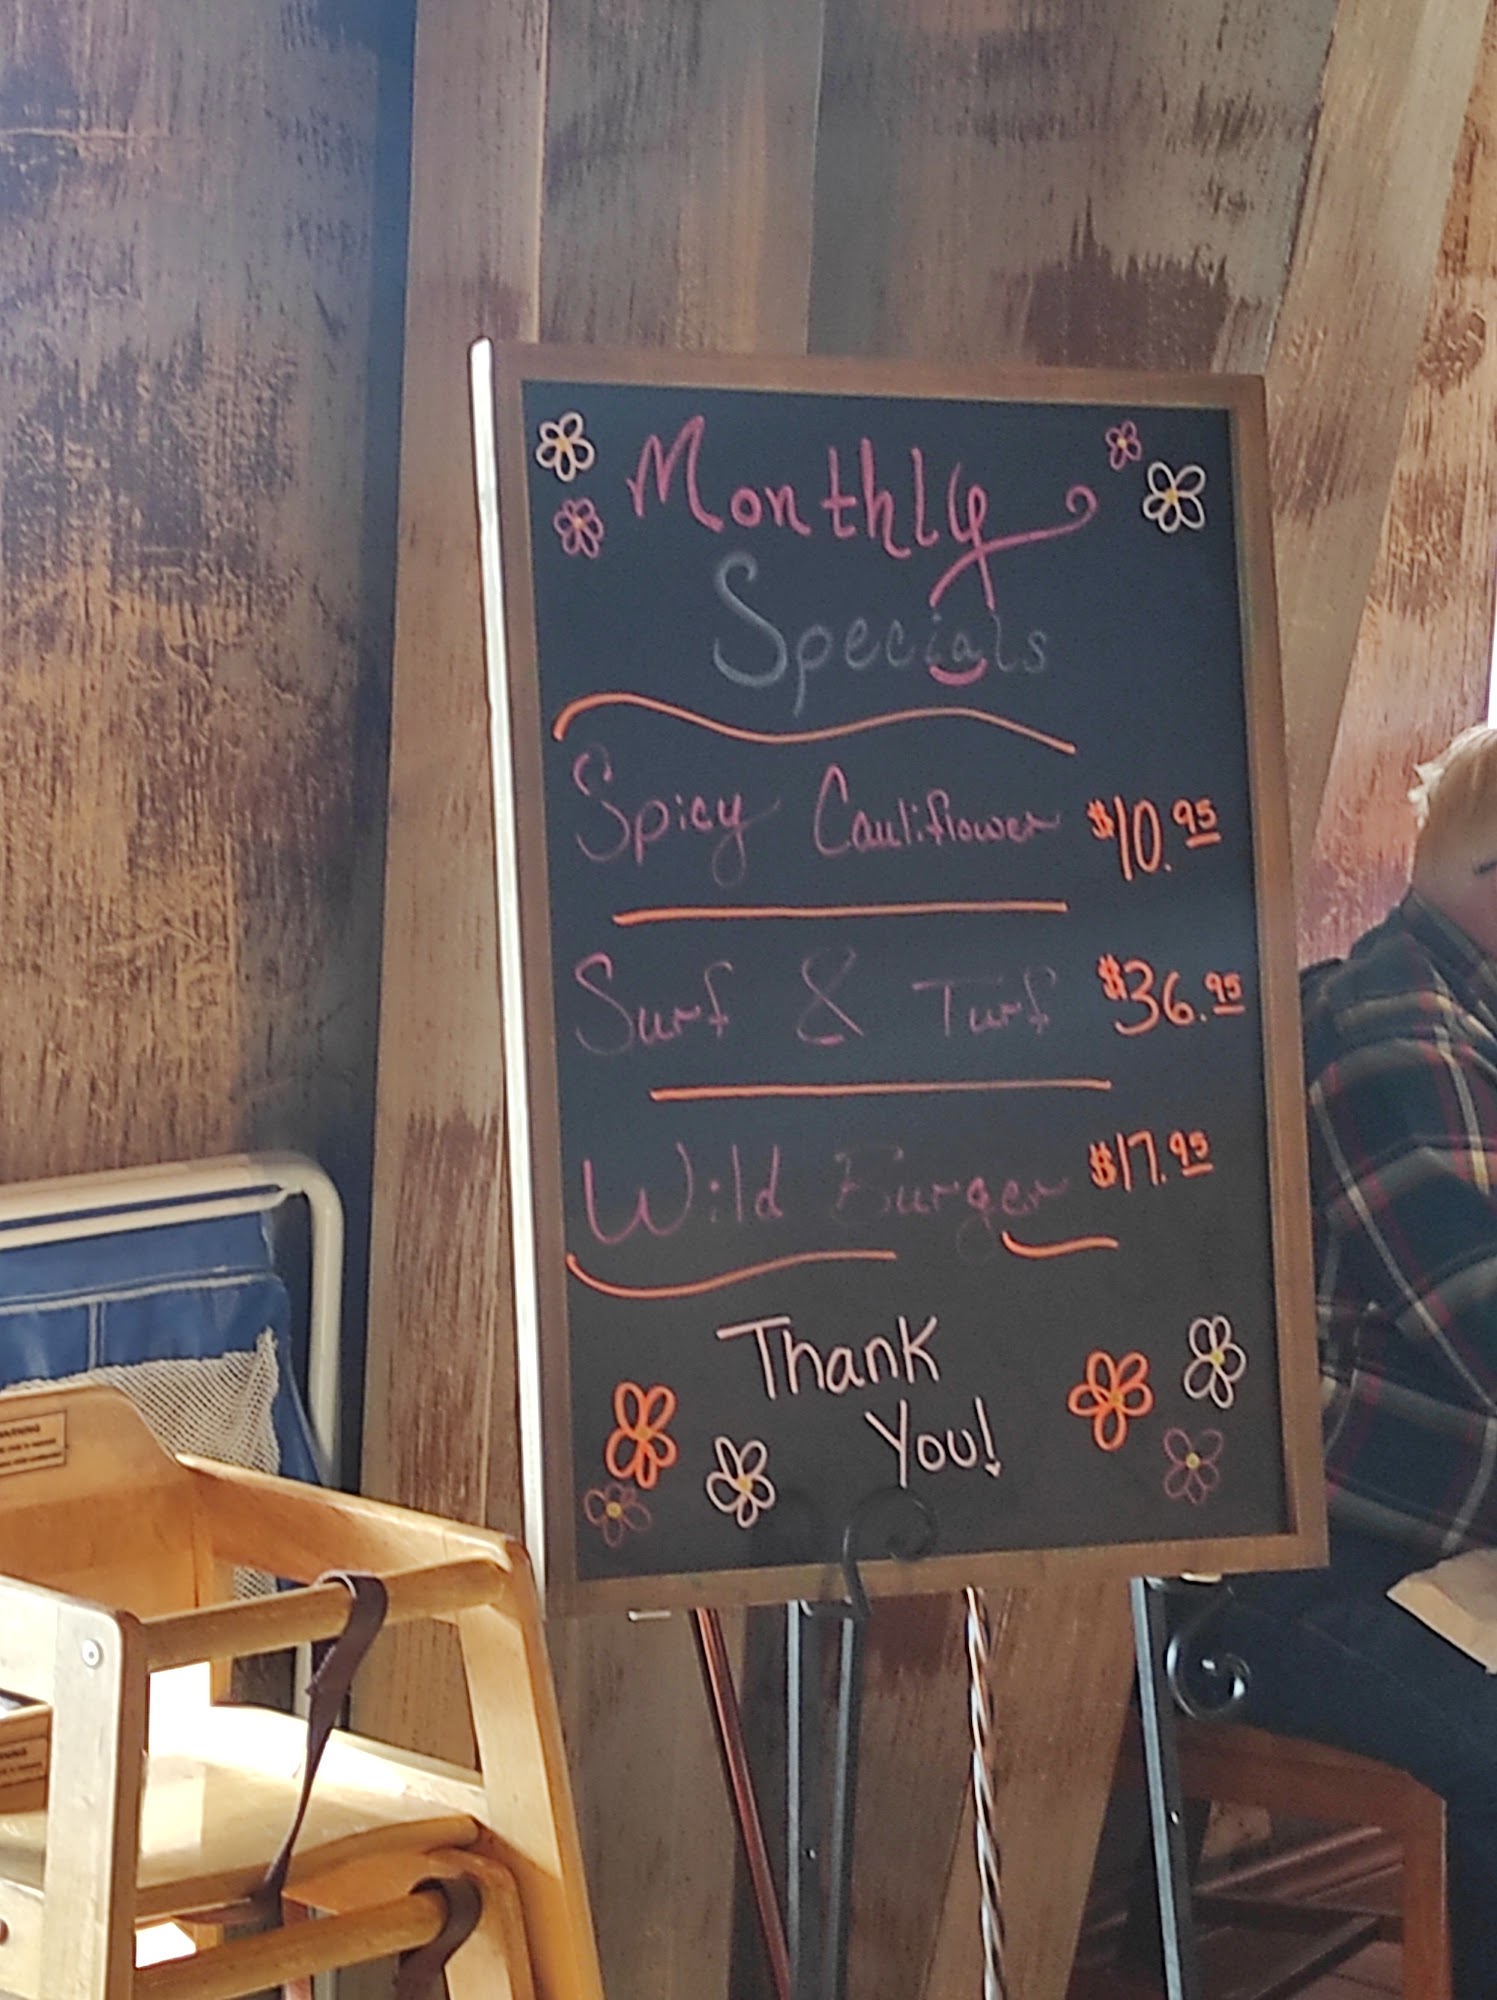 Monthly
Specials
Spicy Cauliflower $10.95
Surf & Turf $36.95
Wild Burger $17.95
Thank
You!
WARNING